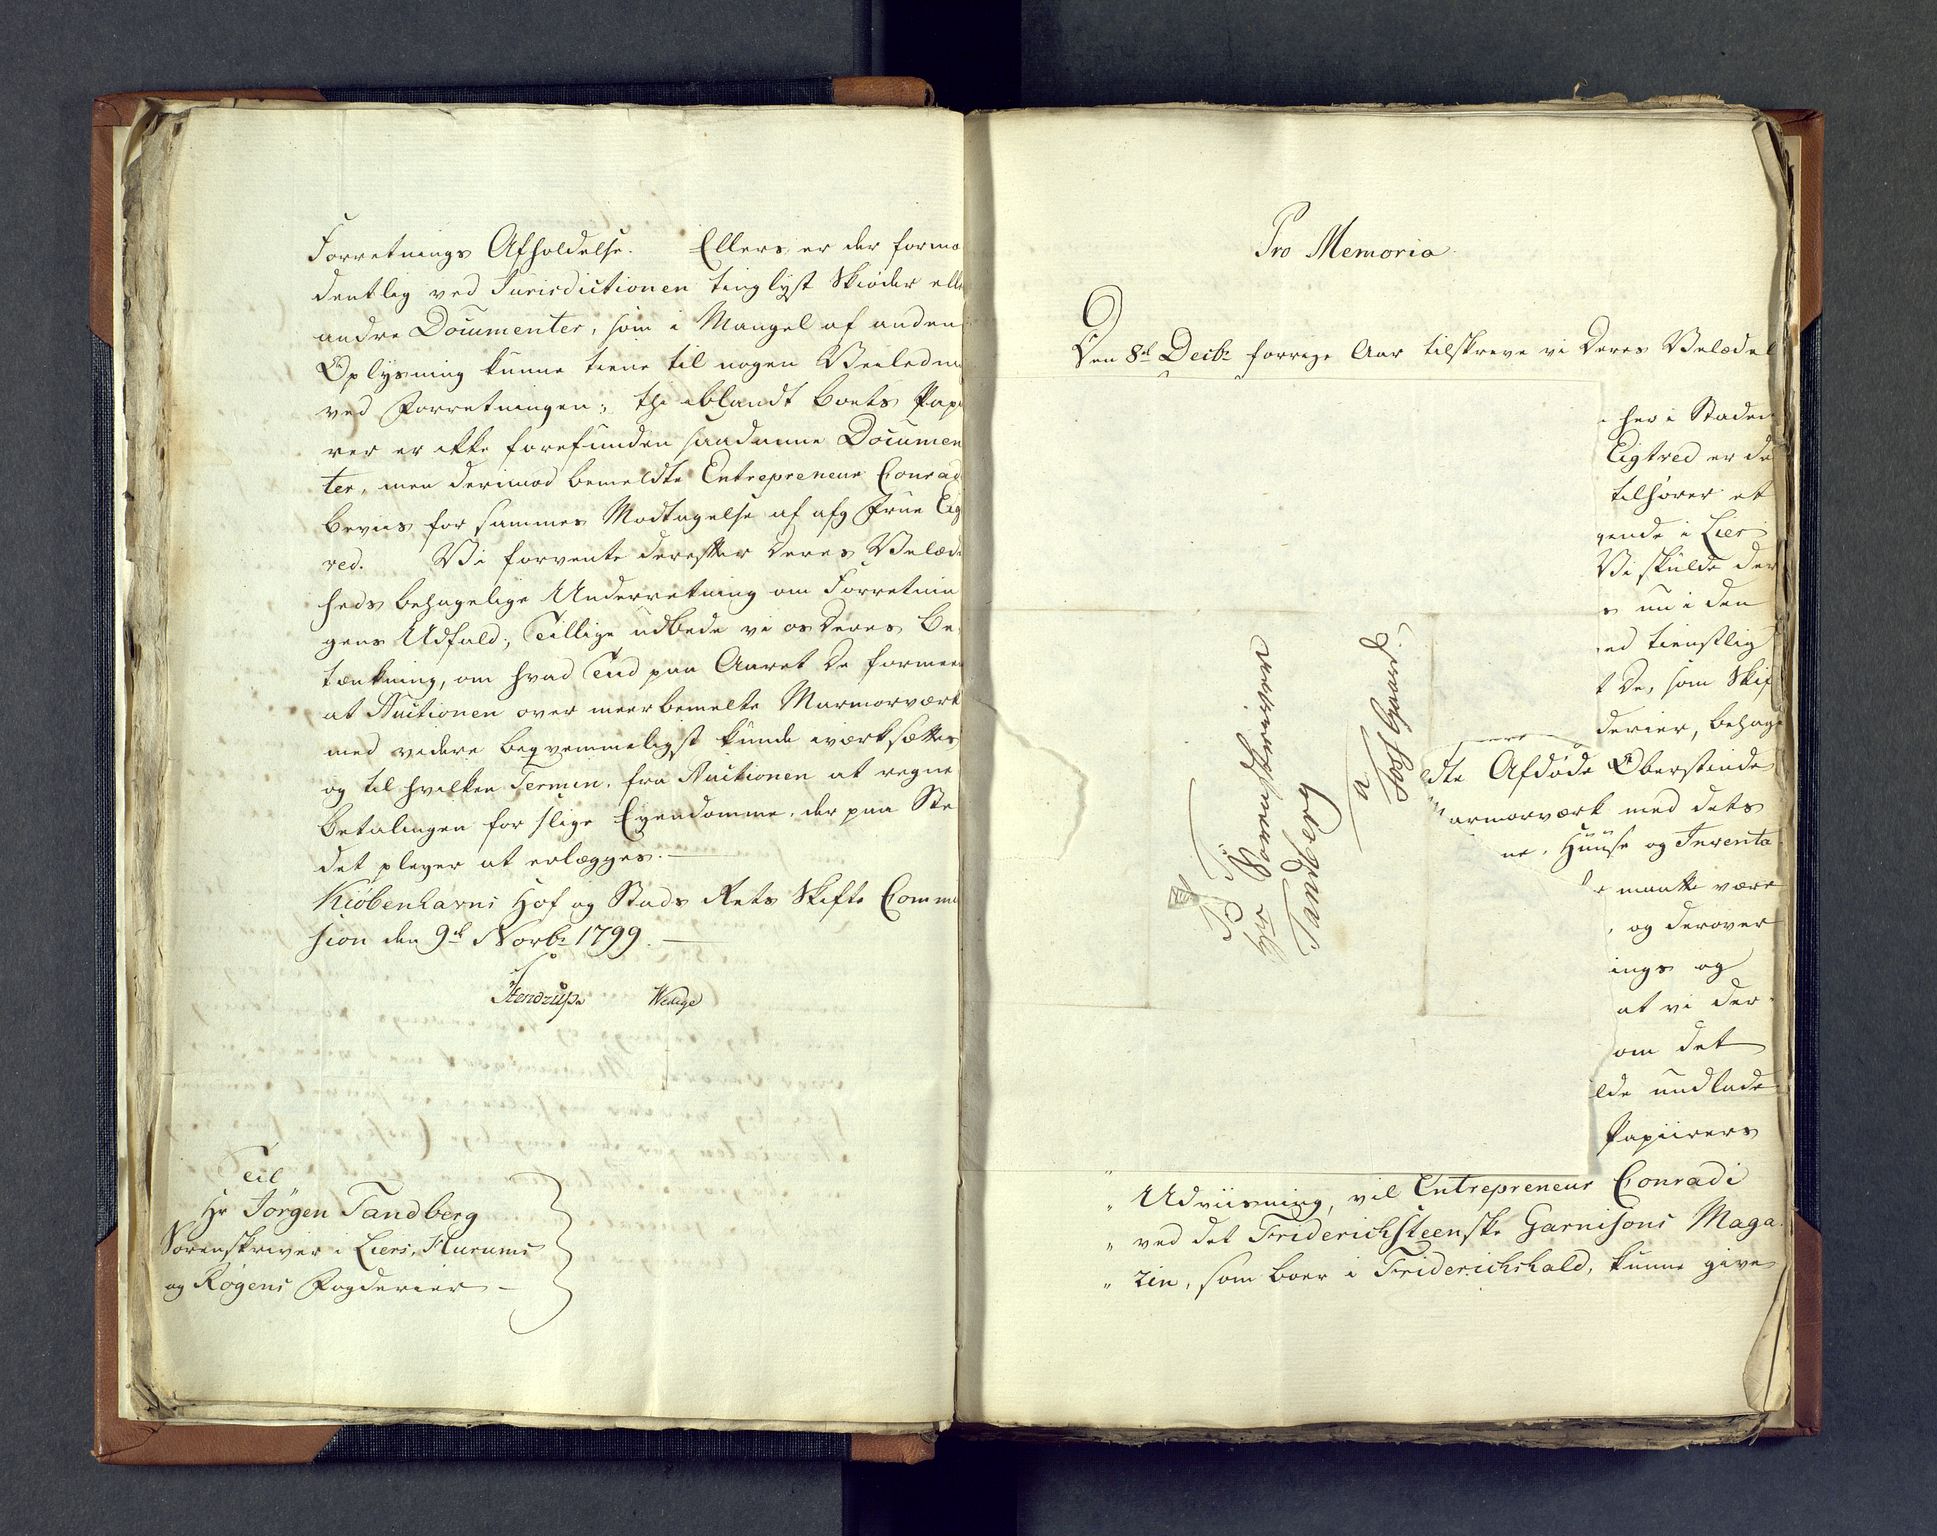 Forretnings Afholdelse. Ellers er der formo
dentlig ved Jurisdictionen tinglyst Skiøder elle
andre Documenter, som i Mangel af anden
Oplysning kunne tiene til nogen Veiledni
ved Forretningen; thi iblandt Boets Papi
rer er ikke forefunden saadanne Documen
ter, men derimod bemeldte Entrepreneur Conrad
Beviis for sammes Modtagelse af afg Frue Eig
red. Vi forvente derefter Deres Velæd
heds behagelige Underretning om Forretnin
gens Udfald; Tillige udbede vi os Deres Be
tænkning, om hvad Tiid paa Aaret De formeen
at Auctionen over meerbemelte Marmorværk
med videre beqvemmeligst kunde iværksættes
og til hvilken Termin, fra Auctionen at regne
Betalingen for slige Eyendomme, der paa Ste
det pleyer at erlægges.
Kiøbenhavns Hof og Stads Rets Skifte Commi
sion den 9de Novbr 1799.
Feddersen
Til
Hr Jørgen Tandberg
Sorenskriver i Liers, Hurums
og Røgens Fogderier
Pro Memoria
Den 8de Decbr forrige Aar tilskreve vi Deres Velædel
her i Staden
Eigtved er de
tilhører et
gende i Lier
Vi skulde der
s nu i den
ed tienstlig
t De, som Skif
derier, behage
dte Afdøde Oberstinde
armorværk med dets
ne, Huuse og Inventa
maatte være
, og derover
ings og
at vi der
om det
lde undlade
Papiirers
Til
Hr Sorenskriver
Tandberg
a
Foss Gaard.
" Udviisning, vil Entrepreneur Conradi
" ved det Friderichsteenske Garnisons Maga
" zin, som boer i Friderichshald, kunne give